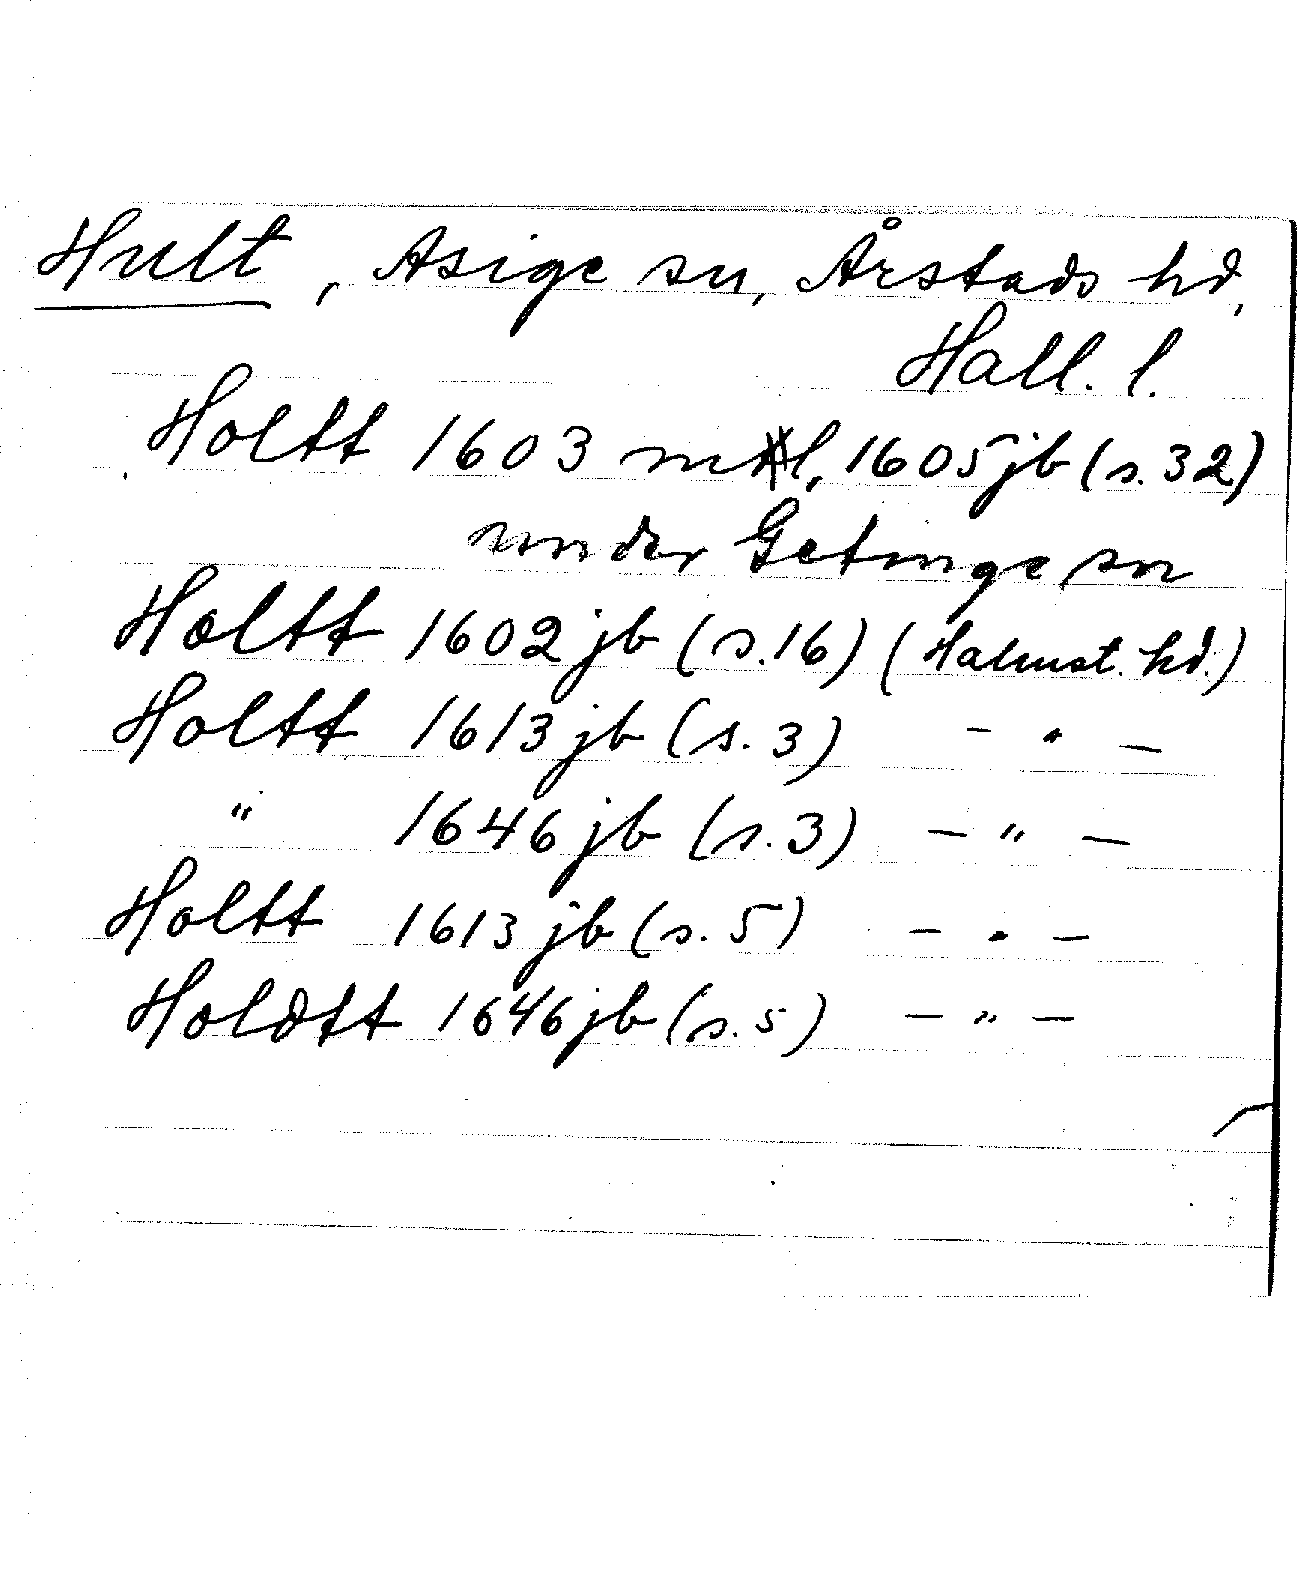 Hult, Asige sn, Årstads hd,
Hall. l.
Holtt 1603 ml, 1605 jb (s. 32)
under Getinge sn
Holtt 1602 jb (s. 16) (Halmst. hd.)
Holtt 1613 jb (s. 3) - " -
" 1646 jb (s. 3) - " -
Holtt 1613 jb (s. 5) - " -
Holdtt 1646 jb (s. 5) - " -